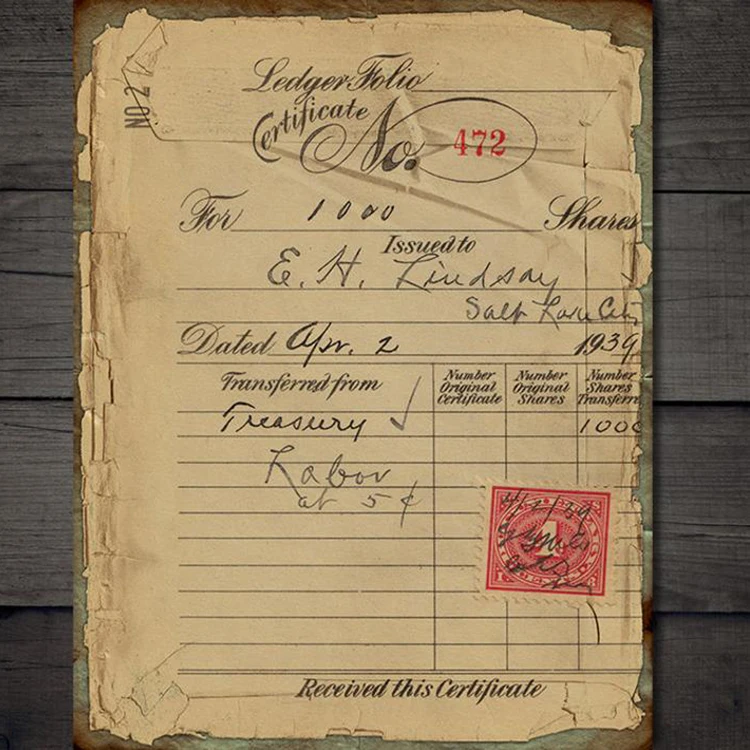 NO 2
Ledger Folio
Certificate No. 472
For 1000 Shares
Issued to
E. H. Lindsay
Salt Lake City
Dated Apr. 2 1939
Transferred from
Number Original Certificate
Number Original Shares
Number Shares Transferre
Treasury ✓ 1000
Labor
at 5¢
4/2/39
4
Received this Certificate